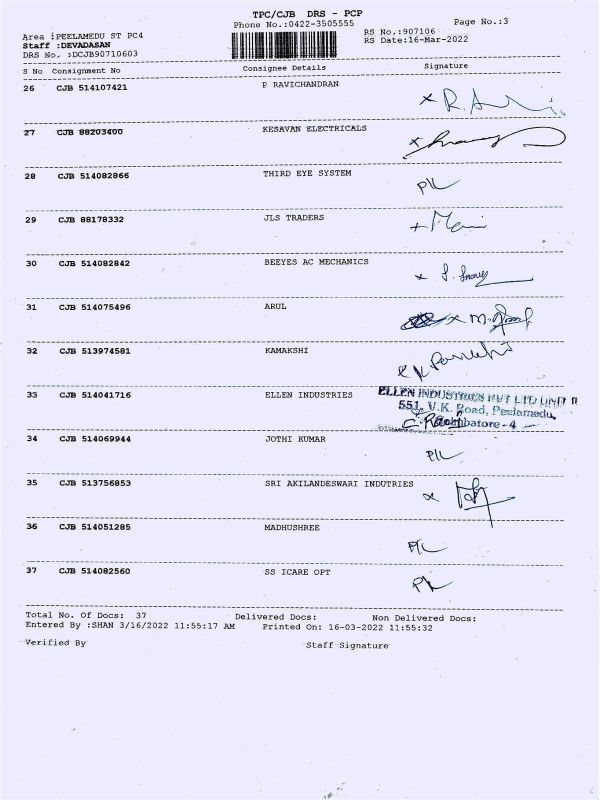 TPC/CJB DRS - PCP
Phone No.:0422-3505555
Page No.:3
Area :PEELAMEDU ST PC4
RS No.:907106
Staff :DEVADASAN
RS Date:16-Mar-2022
DRS No. :DCJB90710603
S No Consignment No Consignee Details Signature
26 CJB 514107421 P RAVICHANDRAN
27 CJB 88203400 KESAVAN ELECTRICALS
28 CJB 514082866 THIRD EYE SYSTEM
29 CJB 88178332 JLS TRADERS
+ Mani
30 CJB 514082842 BEEYES AC MECHANICS
31 CJB 514075496 ARUL
32 CJB 513974581 KAMAKSHI
33 CJB 514041716 ELLEN INDUSTRIES
ELLEN INDUSTRIES PVT LTD UNIT II
551, V.K. Road, Peelamedu,
Coimbatore - 4
34 CJB 514069944 JOTHI KUMAR
35 CJB 513756853 SRI AKILANDESWARI INDUTRIES
36 CJB 514051285 MADHUSHREE
37 CJB 514082560 SS ICARE OPT
Total No. Of Docs: 37 Delivered Docs: Non Delivered Docs:
Entered By :SHAN 3/16/2022 11:55:17 AM Printed On: 16-03-2022 11:55:32
Verified By Staff Signature